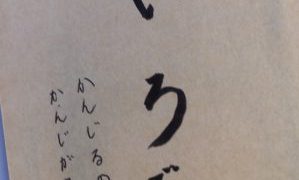 いろで
かんじるの
かんじが